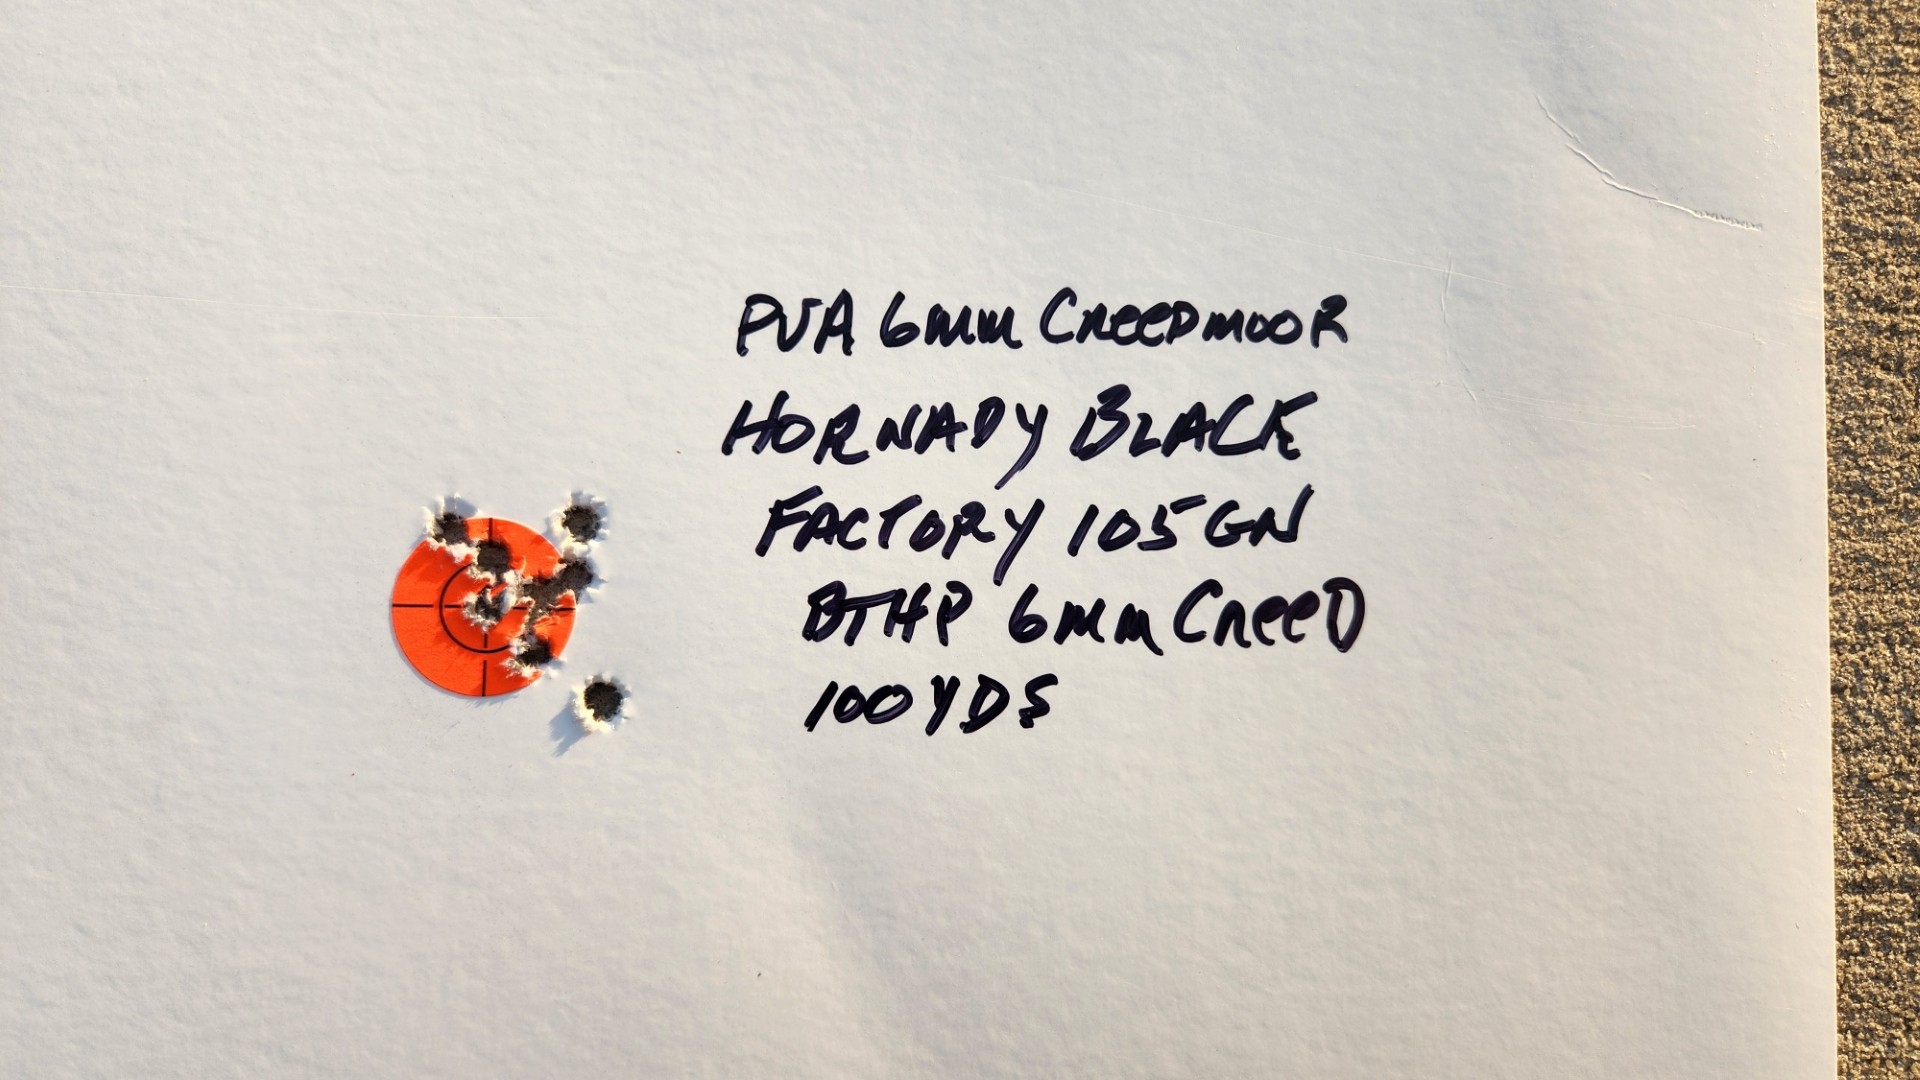 PVA 6mm CREEDMOOR
HORNADY BLACK
FACTORY 105 GN
BTHP 6mm CREED
100 YDS